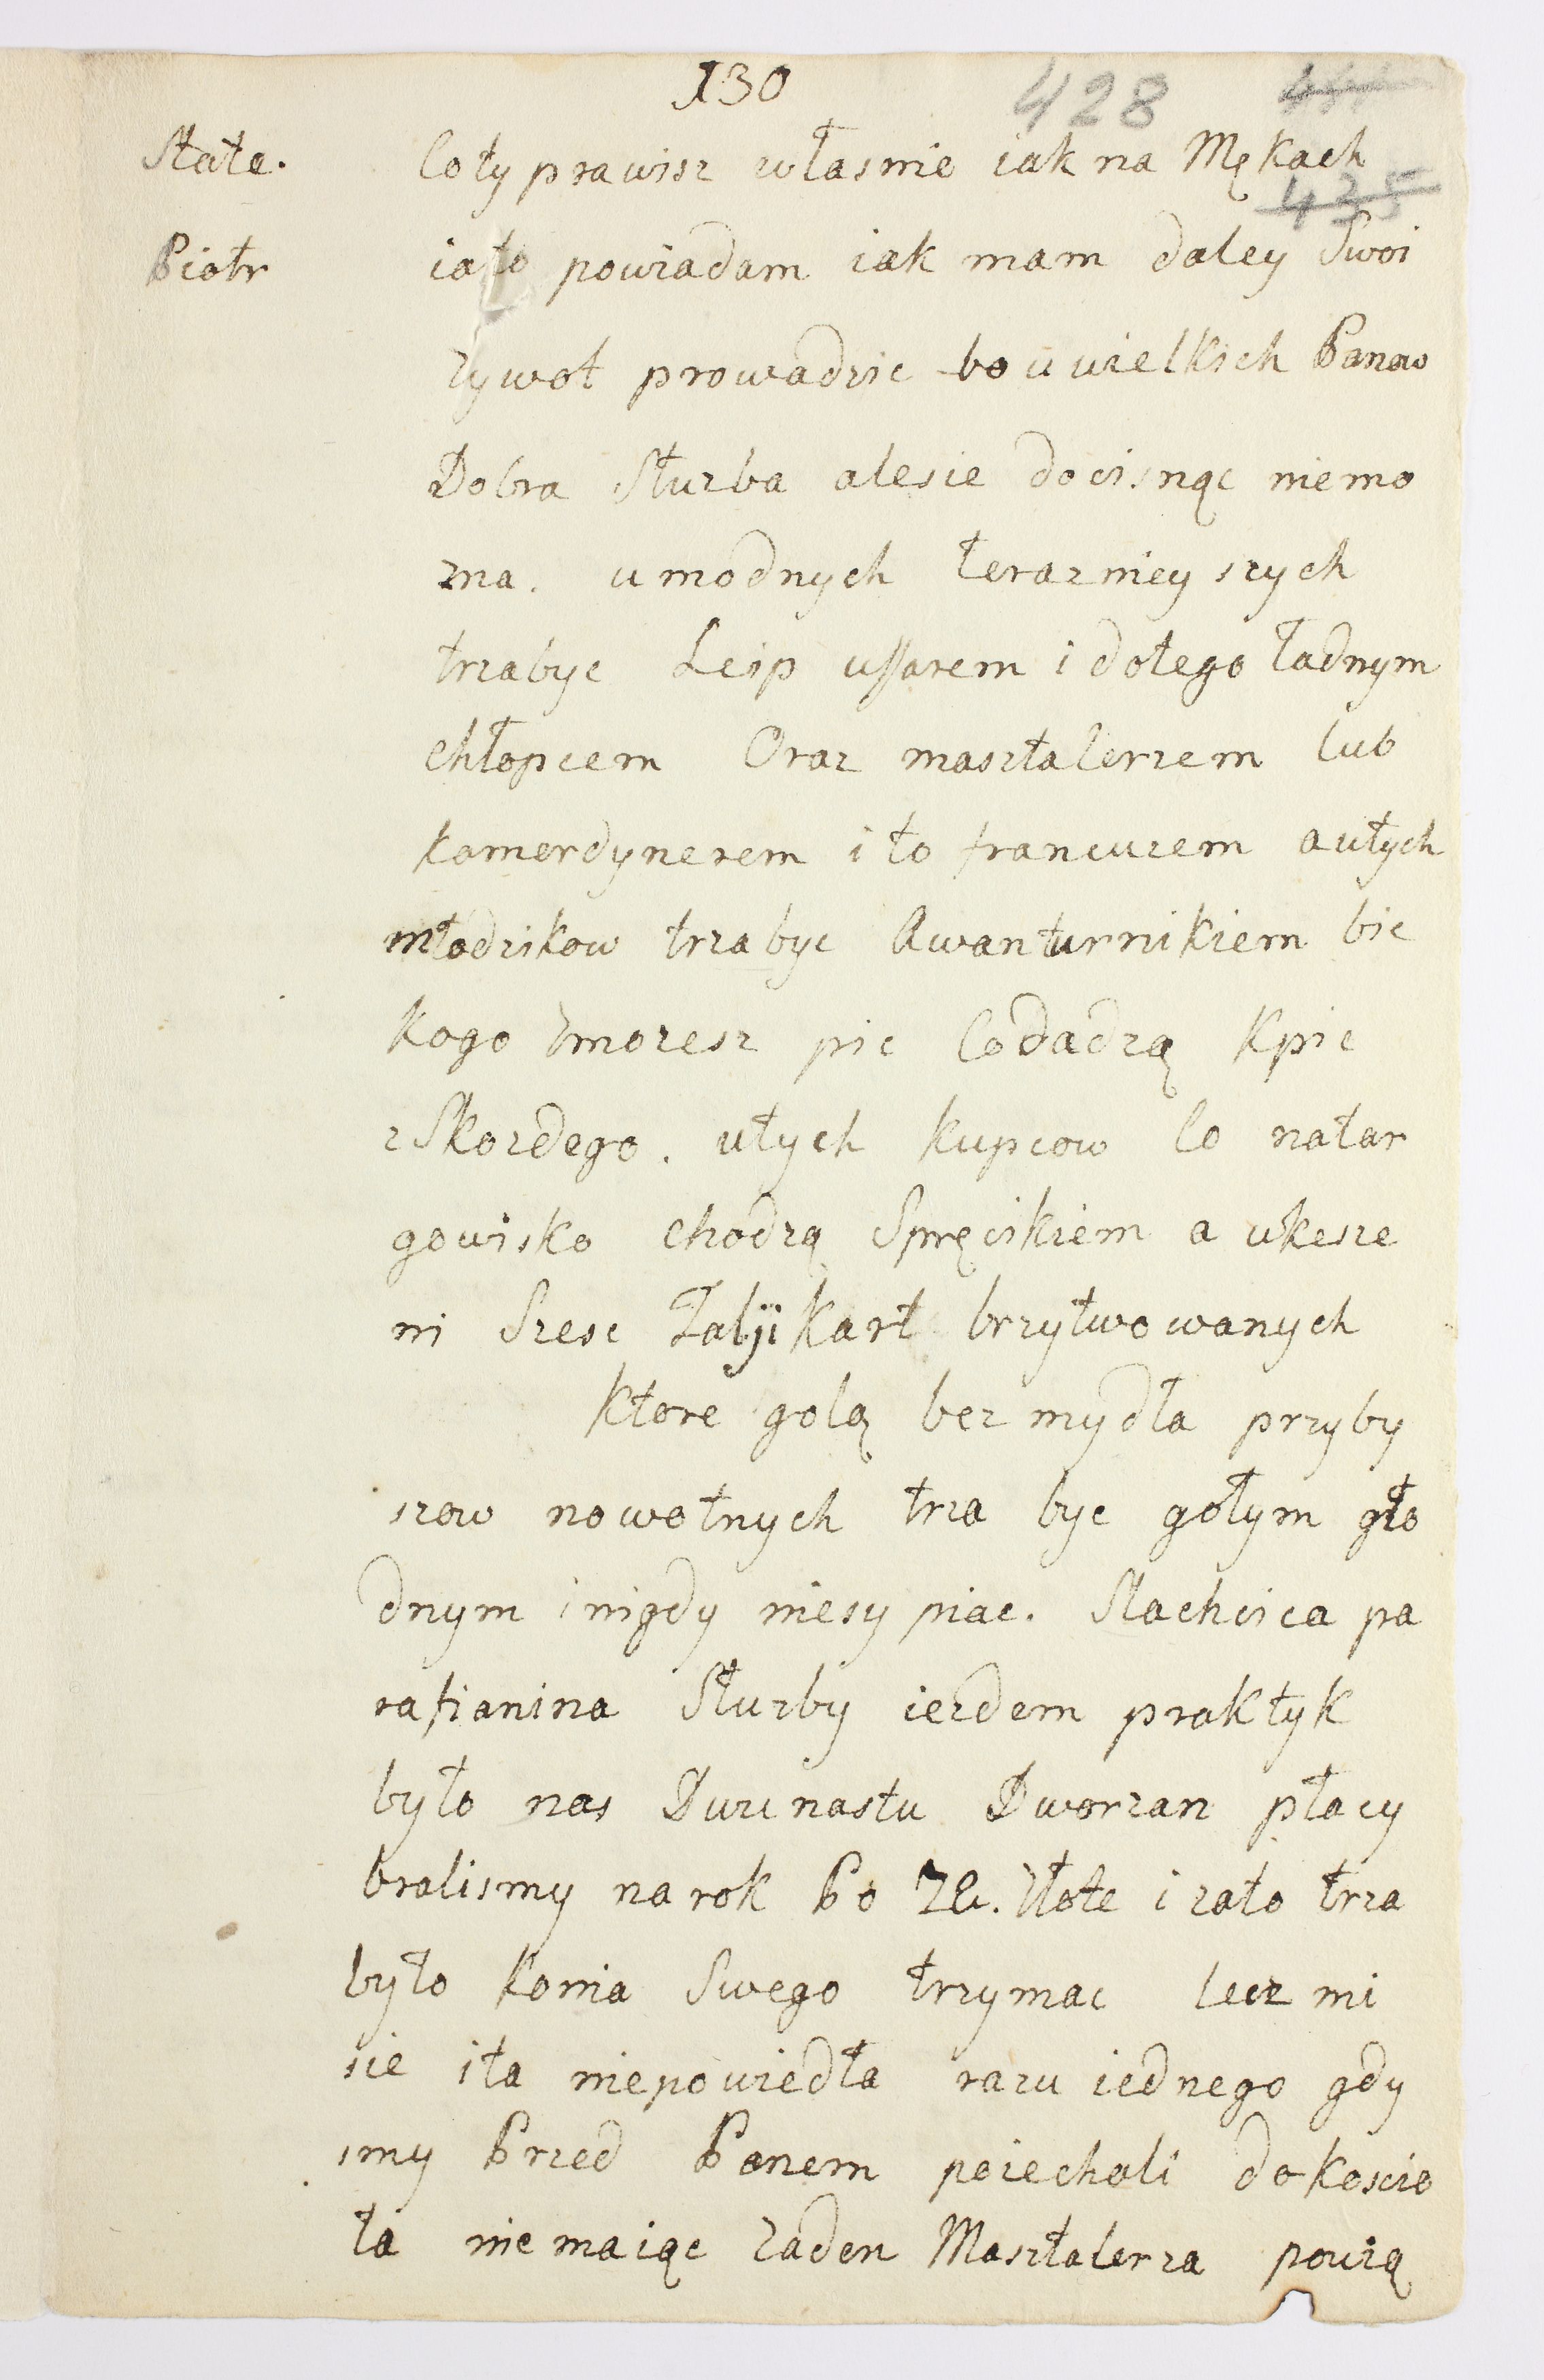 130
428
435
State. Coty prawisz własnie iak na Mękach
Piotr iato powiadam iak mam daley Swoi
zywot prowadzic bo u wielkich Panow
Dobra Słuzba alesie docisnąc niemo
zna. u modnych terazniey szych
trzabyc Leip ussarem i dotego ładnym
chłopcem Oraz masztalerzem lub
kamerdynerem i to francuzem autych
młodzikow trzabyc Awanturnikiem bic
kogo zmozesz pic Co dadzą Kpic
zSkozdego. utych kupcow Co natar
gowisko chodzą Spręcikiem a wkesze
ni Szesc Taliji Kart brzytwowanych
Ktore golą bez mydła przyby
szow nowotnych trza byc gołym gło
dnym i nigdy niesypiac. Slachcica pa
rafianina Słuzby iezdem praktyk
było nas Dwunastu Dworzan płacy
bralismy na rok Po Złote i zato trza
było konia Swego trzymac lecz mi
sie ita niepowiedła razu iednego gdy
smy Przed Panem poiechali do koscio
ła nie maiąc zaden Masztalerza powią